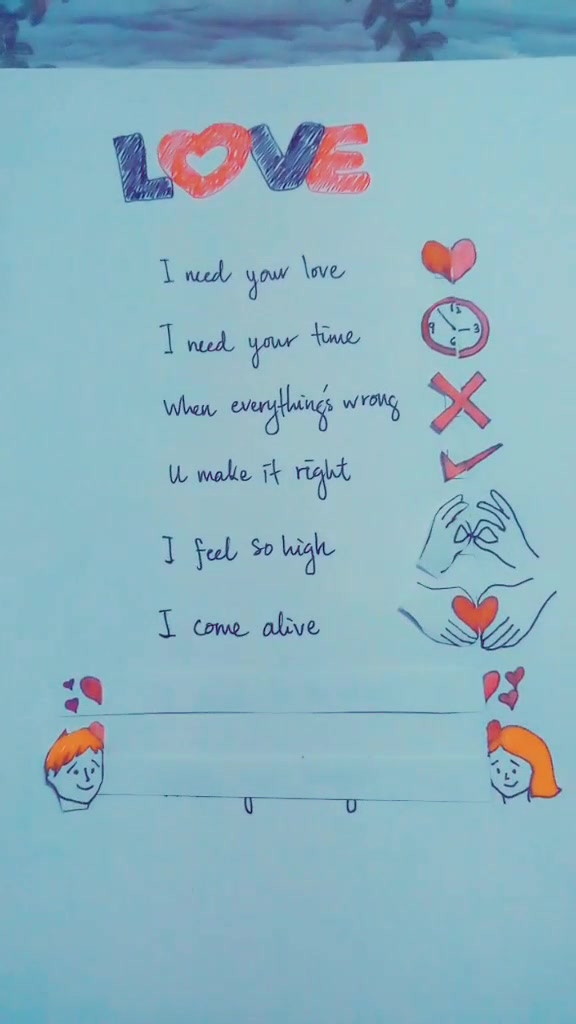 LOVE
I need your love
I need your time
12
9 3
6
When everything's wrong
U make it right
I feel so high
I come alive